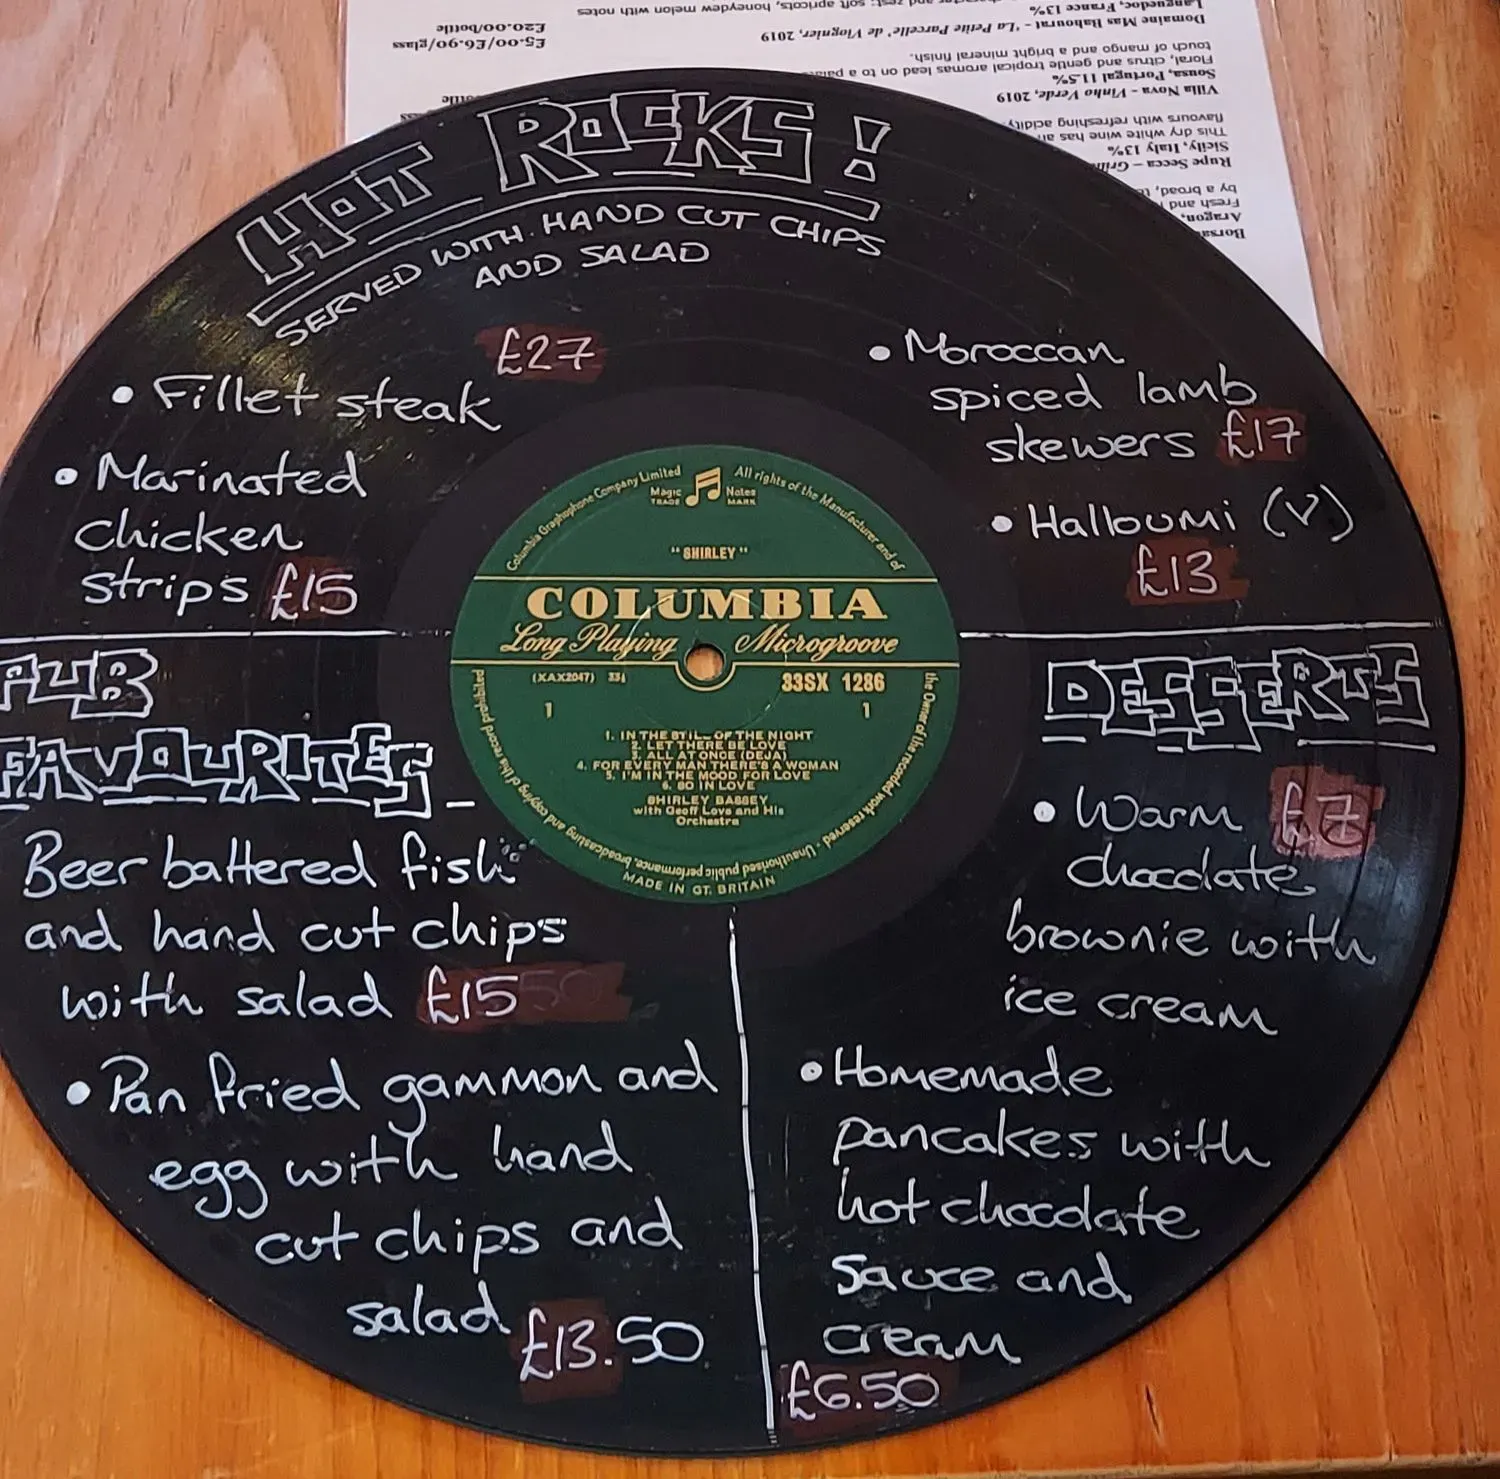 HOT ROCKS!
SERVED WITH HAND CUT CHIPS
AND SALAD
£27
• Fillet steak
• Marinated
chicken
strips £15
• Moroccan
spiced lamb
skewers £17
• Halloumi (V)
£13
PUB
FAVOURITES -
Beer battered fish
and hand cut chips
with salad £15
• Pan fried gammon and
egg with hand
cut chips and
salad £13.50
DESSERTS
• Warm £7
chocolate
brownie with
ice cream
• Homemade
pancakes with
hot chocolate
sauce and
cream
£6.50
Columbia Graphophone Company Limited
All rights of the Manufacturer and of
the Owner of the recorded work reserved · Unauthorised public performance, broadcasting and copying of this record prohibited
Magic Notes
TRADE MARK
"SHIRLEY"
COLUMBIA
Long Playing Microgroove
(XAX2047) 33⅓
33SX 1286
1 1
1. IN THE STILL OF THE NIGHT
2. LET THERE BE LOVE
3. ALL AT ONCE (DEJA)
4. FOR EVERY MAN THERE'S A WOMAN
5. I'M IN THE MOOD FOR LOVE
6. SO IN LOVE
SHIRLEY BASSEY
with Geoff Love and His
Orchestra
MADE IN GT. BRITAIN
Aragon,
Fresh and
by a broad,
Rupe Secca –
Sicily, Italy 13%
This dry white wine has
flavours with refreshing acidity
Villa Nova - Vinho Verde, 2019
Sousa, Portugal 11.5%
Floral, citrus and gentle tropical aromas lead on to a
touch of mango and a bright mineral finish.
Domaine Mas Bahourat - 'La Petite Parcelle' de Viognier, 2019
£5.00/£6.90/glass
Languedoc, France 13%
£20.00/bottle
and zest: soft apricots, honeydew melon with notes